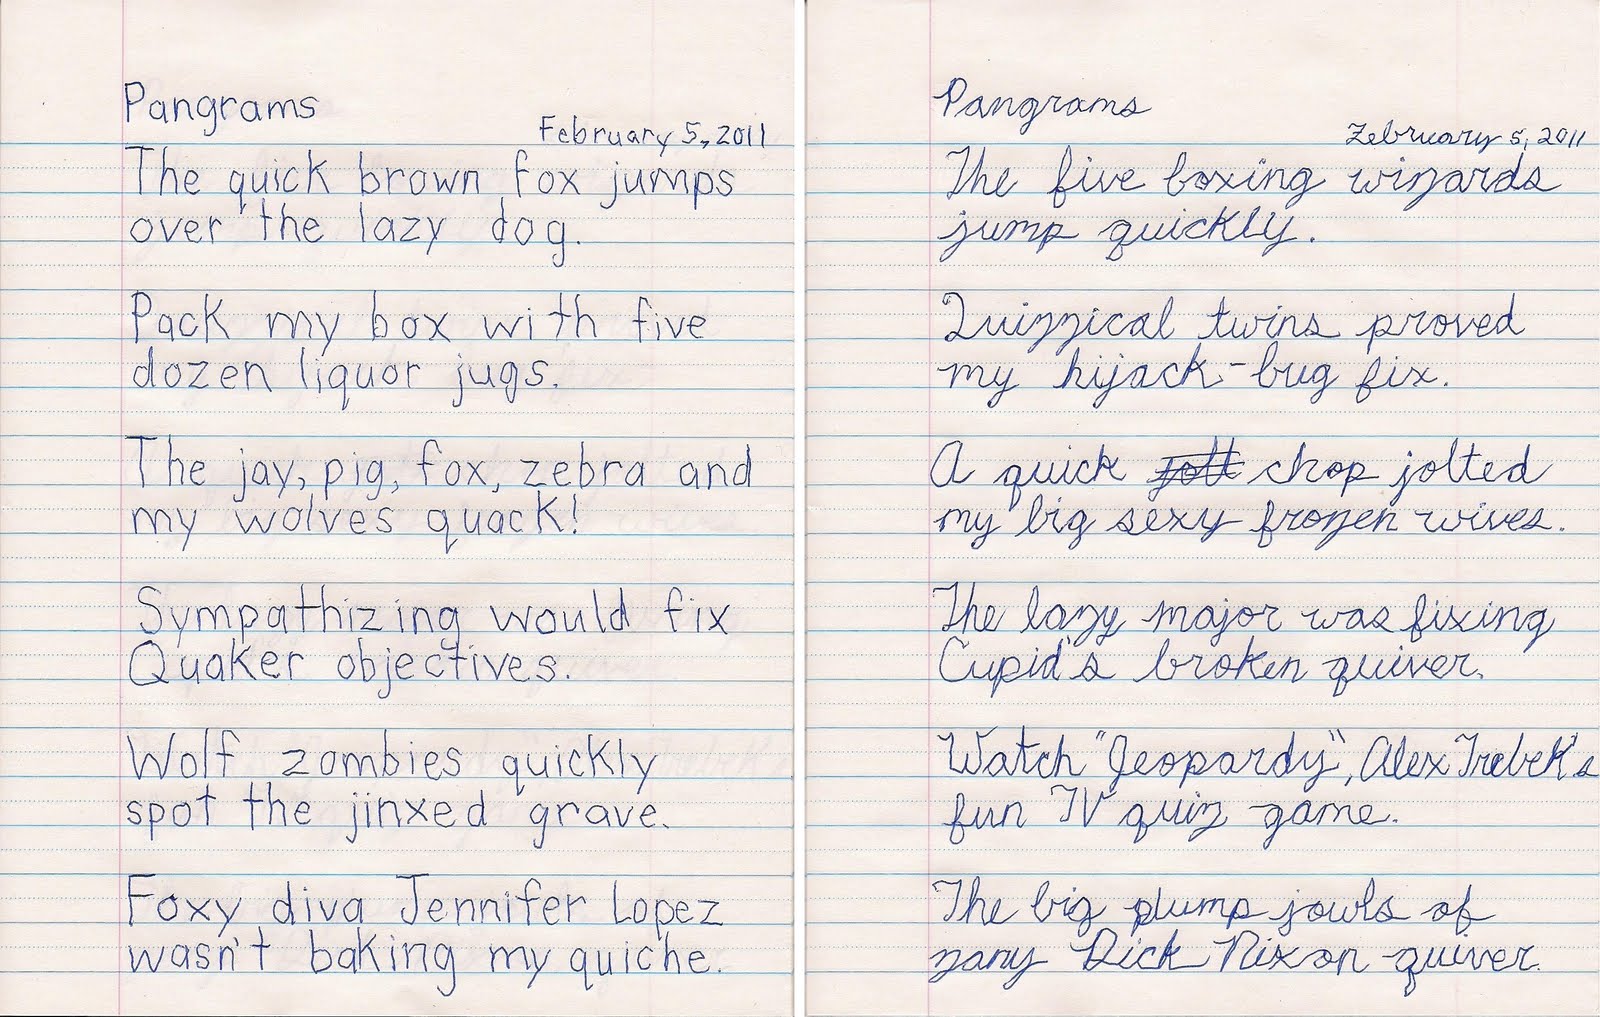 Pangrams
February 5, 2011
The quick brown fox jumps
over the lazy dog.
Pack my box with five
dozen liquor jugs.
The jay, pig, fox, zebra and
my wolves quack!
Sympathizing would fix
Quaker objectives.
Wolf zombies quickly
spot the jinxed grave.
Foxy diva Jennifer Lopez
wasn't baking my quiche.
Pangrams
February 5, 2011
The five boxing wizards
jump quickly.
Quizzical twins proved
my hijack-bug fix.
A quick jolt chop jolted
my big sexy frozen wives.
The lazy major was fixing
Cupid's broken quiver.
Watch "Jeopardy", Alex Trebek's
fun TV quiz game.
The big plump jowls of
zany Dick Nixon quiver.